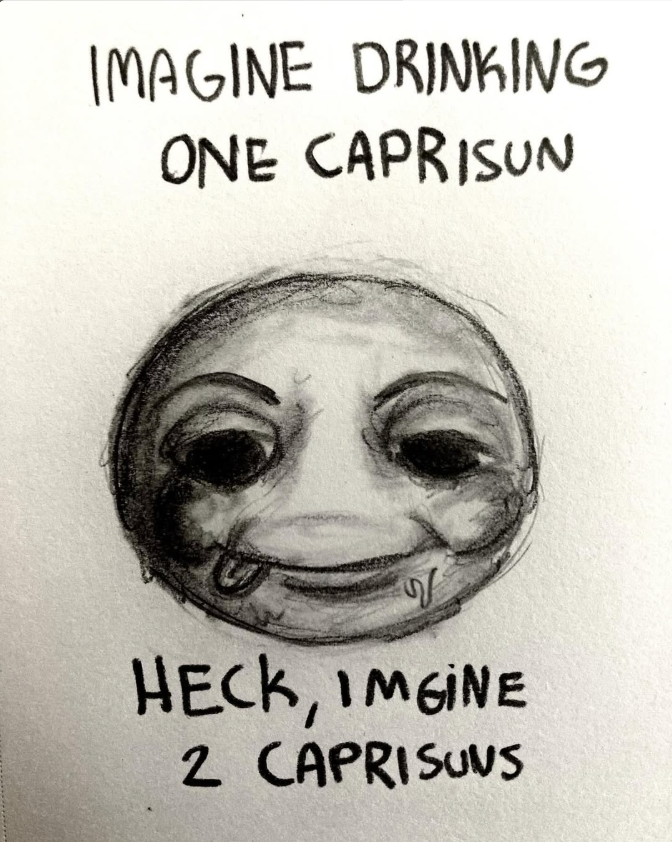 IMAGINE DRINKING
ONE CAPRISUN
HECK, IMGINE
2 CAPRISUNS